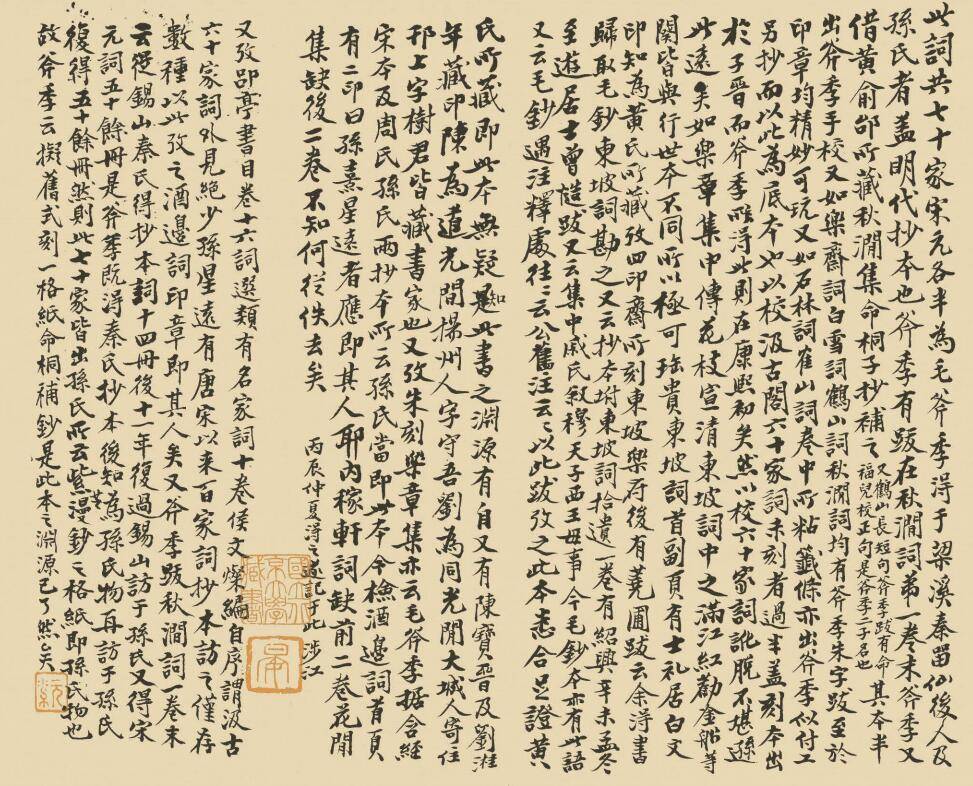 此詞共七十家宋元各半為毛斧季淂于梁溪秦留仙後人及
孫氏者蓋明代抄本也斧季有跋在秋澗詞第一卷末斧季又
借黃俞邰所藏秋澗集命桐子抄補之又鶴山長短句斧季跋有命
福兒校正句是斧季二子名也其本半
出斧季手校又如樂齋詞白雪詞鶴山詞秋澗詞均有斧季朱字跋至於
印章均精妙可玩又如石林詞崔山詞卷中所粘籤條亦出斧季似付工
另抄而以此為底本也以校汲古閣六十家詞未刻者過半蓋刻本出
於子晉而斧季所淂此則在康熙初矣然以校六十家詞訛脫不堪遜
此遠矣如樂章集中傳花枝宣清東坡詞中之滿江紅勸金船等
闋皆與行世本不同所以極可珤貴東坡詞首副頁有士礼居白文
印知為黃氏所藏攷四印齋所刻東坡樂府後有蕘圃跋云余淂書
歸取毛鈔東坡詞勘之又云抄本坿東坡詞拾遺一卷有紹興辛未孟冬
至遊居士曾慥跋又云集中戚氏敘穆天子西王母事今毛鈔本亦有此語
又云毛鈔遇注釋處往往云公舊注云云以此跋攷之此本悉合足證黃
氏所藏即此本無疑知此書之淵源有自又有陳寶晉及劉淮
年藏印陳為道光間揚州人字守吾劉為同光間大城人寄住
邗上字樹君皆藏書家也又攷朱刻樂章集亦云毛斧季據含經
宋本及周氏孫氏兩抄本所云孫氏當即此本今檢酒邊詞首頁
有二印曰孫熹星遠者應即其人耶內稼軒詞缺前二卷花間
集缺後二卷不知何從佚去矣
丙辰仲夏淂之題記于此 涉江
又攷郘亭書目卷十六詞選類有名家詞十卷侯文燦編自序謂汲古
六十家詞外見絕少孫星遠有唐宋以來百家詞抄本訪之僅存
數種以此攷之酒邊詞印章即其人矣又斧季跋秋澗詞一卷末
云從錫山秦氏得抄本詞十四冊後十一年復過錫山訪于孫氏又得宋
元詞五十餘冊是斧季既淂秦氏抄本後知為孫氏物再訪于孫氏
復得五十餘冊然則此七十家皆出孫氏所云紫漫鈔之格紙即孫氏物也
故斧季云擬舊式刻一格紙命桐補鈔是此本之淵源已了然矣